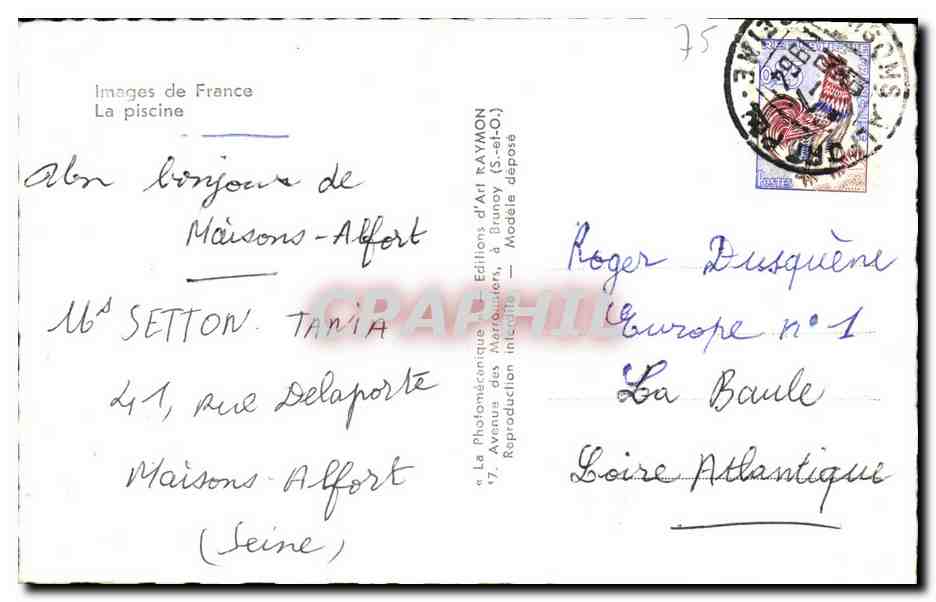 75
Images de France
La piscine
bonjour de
Maisons-Alfort
SETTON TANIA
41, rue Delaporte
Maisons-Alfort
(Seine)
« La Photomécanique » — Editions d'Art RAYMON
17, Avenue des Marronniers, à Brunoy (S.-et-O.)
Reproduction interdite — Modèle déposé
CRAPHIL
POSTES
Roger Dusquène
Europe n° 1
La Baule
Loire Atlantique